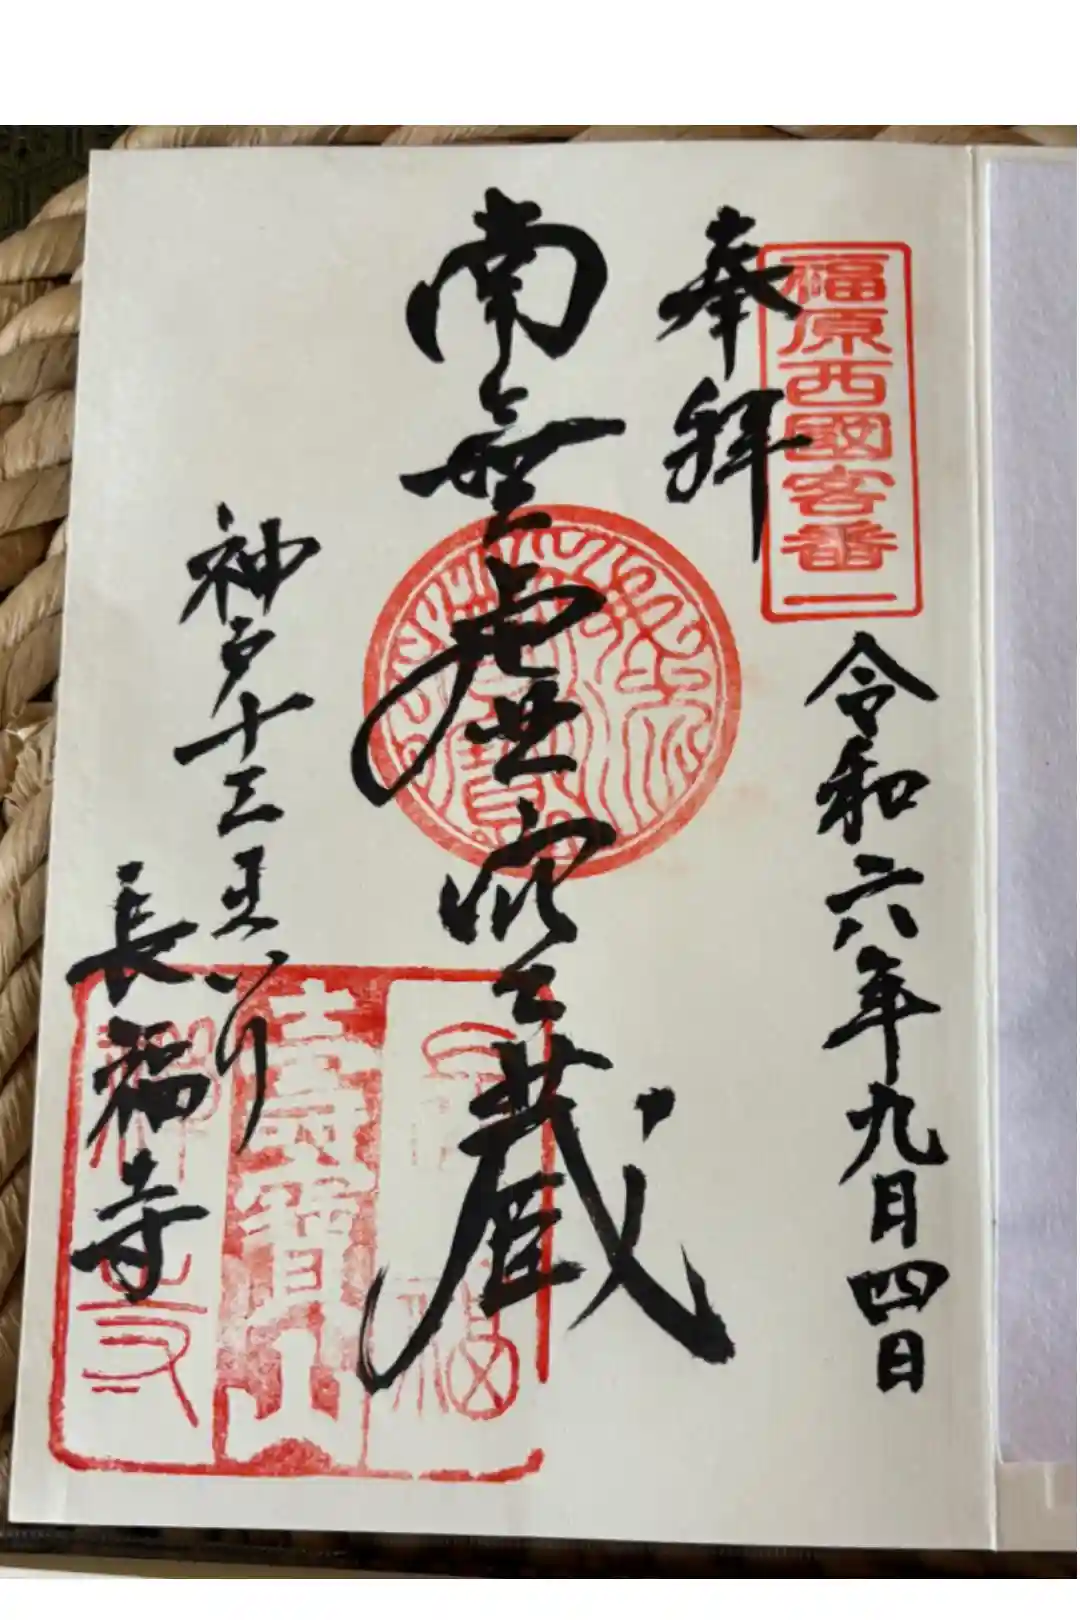 福原西國客番
奉拝
令和六年九月四日
南無虚空蔵
神戸十三まいり
長福寺
壽寶山